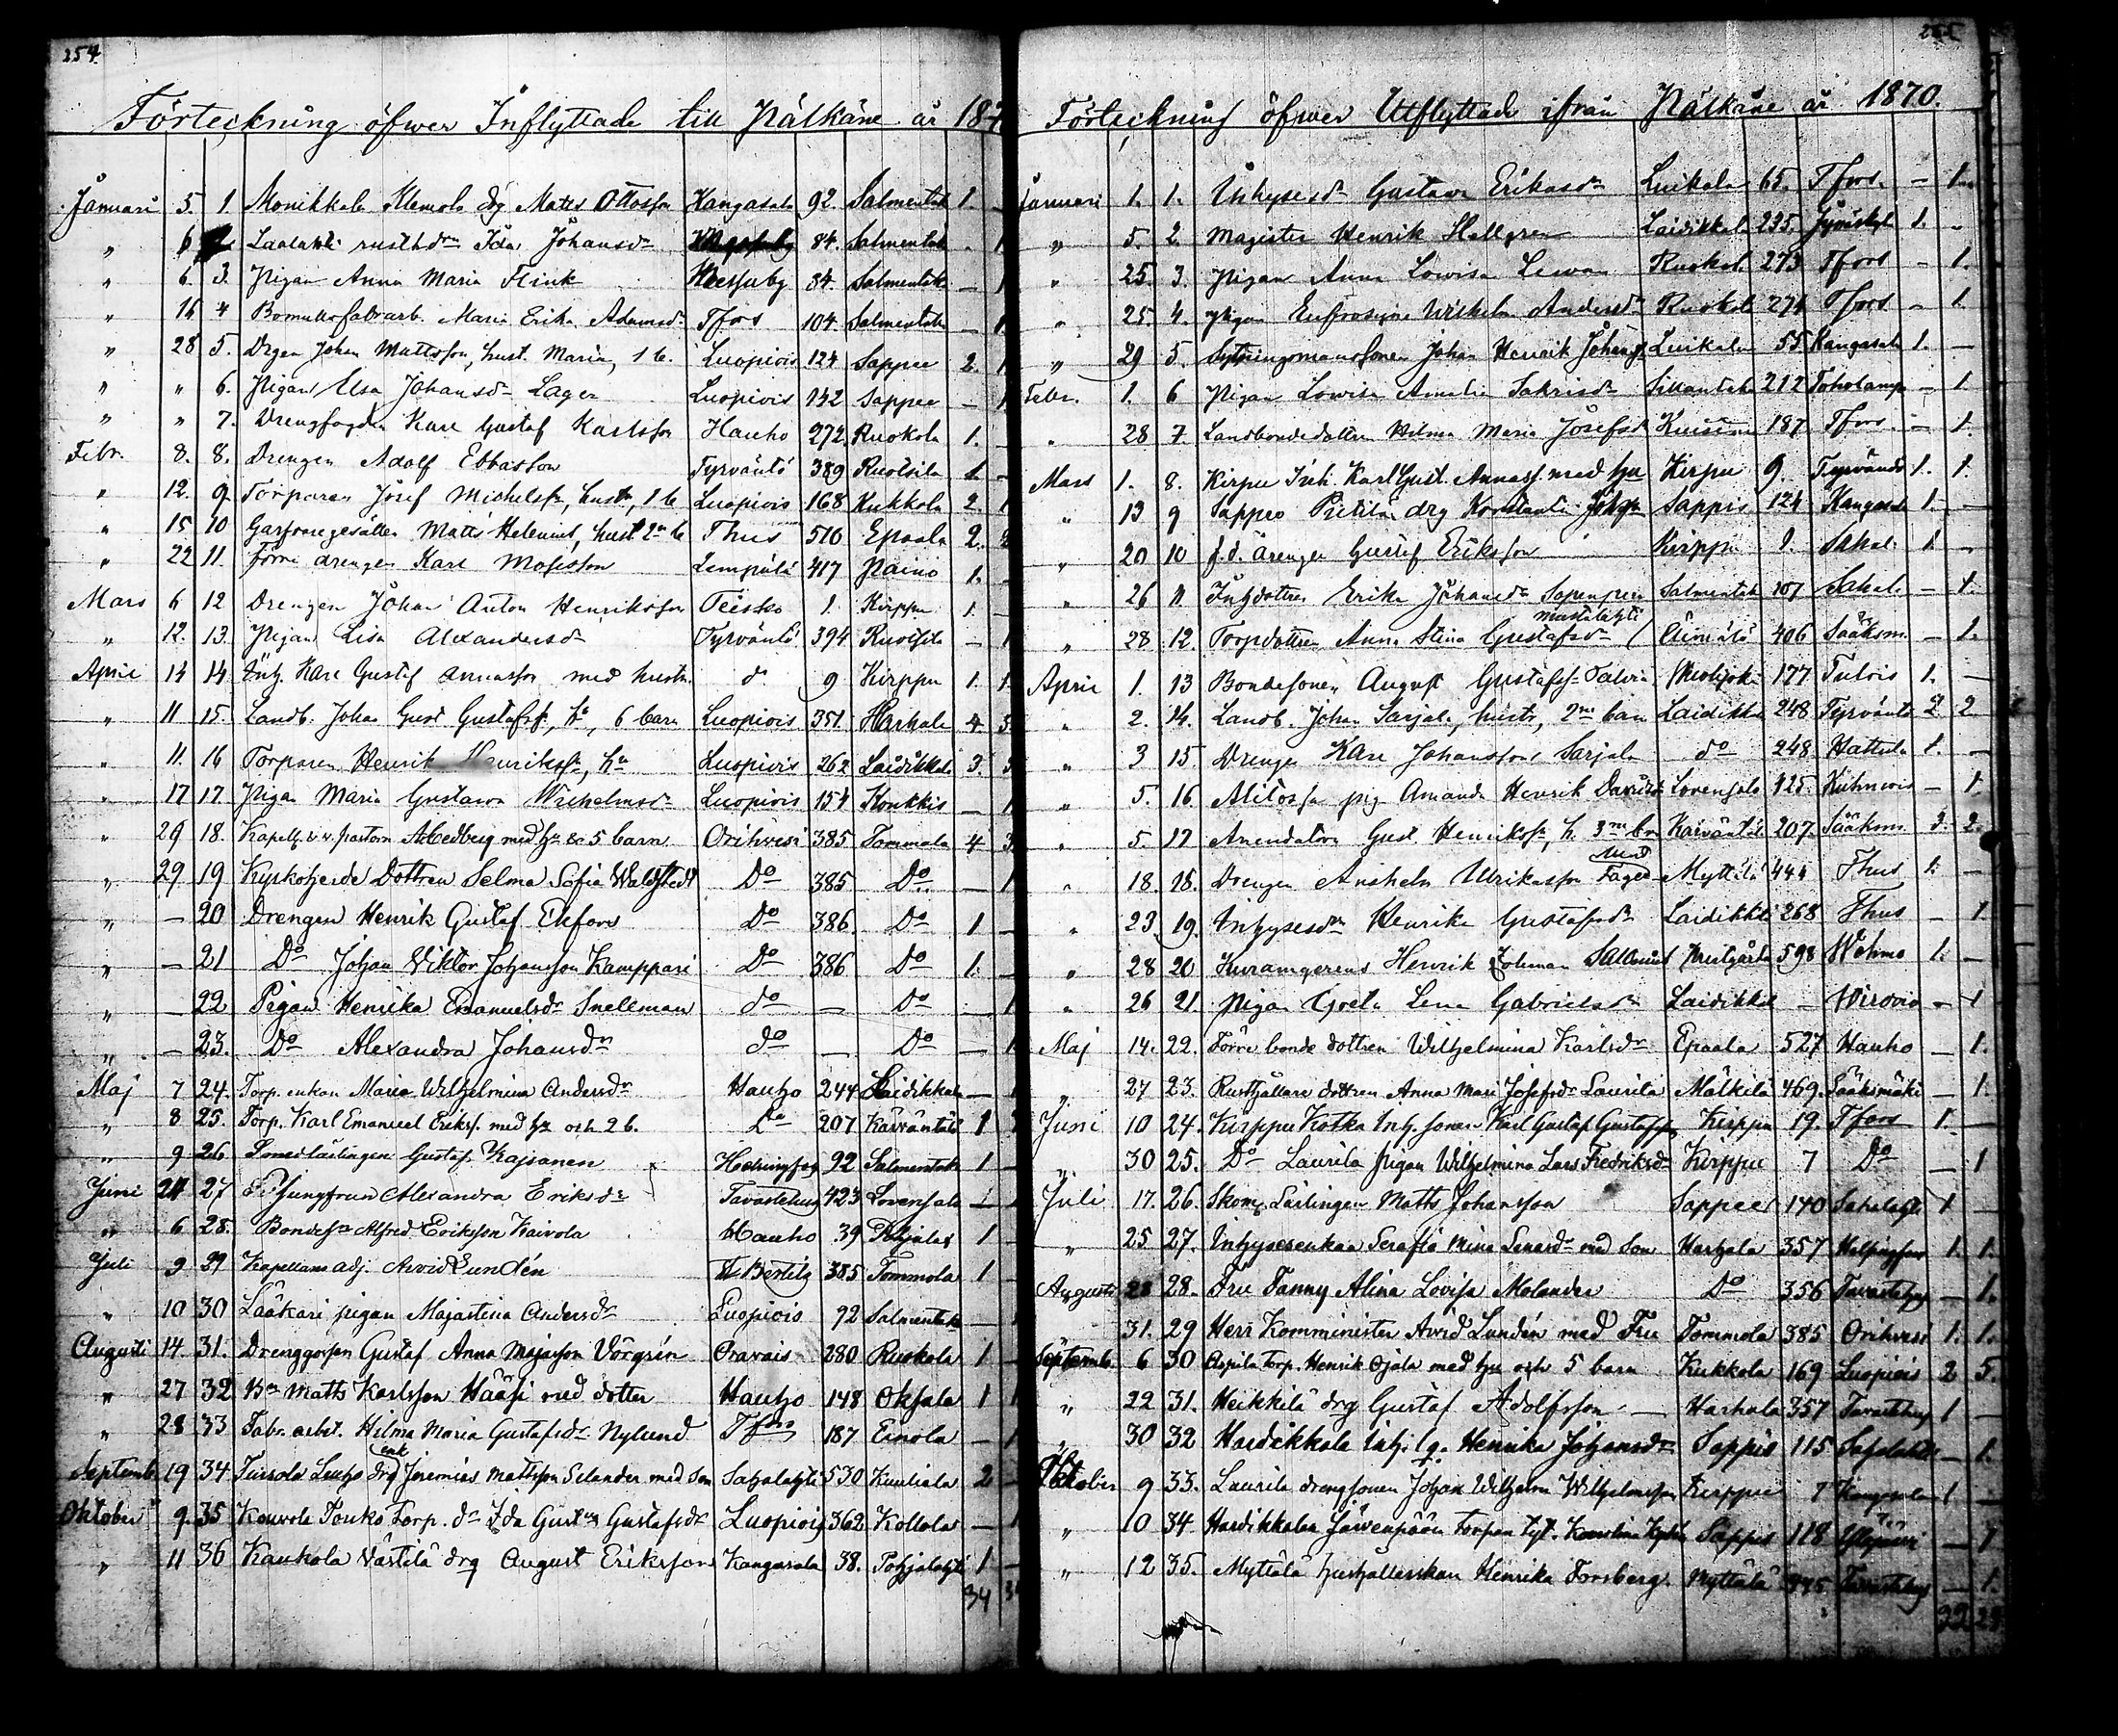 254
Förteckning öfwer Inflyttade till Pälkäne år 187
Januari 5. 1. Monikkala Klemola drg Matts Ottosson Kangasala 92. Salmentak 1. –
„ 6 2 rusthdn Ida Johansdr 84. Salmentak - 1
„ 6. 3. Pigan Anna Maria Flink Messuby 84. Salmentak – 1
„ 16 4 Bomullsfabrarb. Maria Erika Adamsdr Tfors 104 Salmentak – 1
„ 28 5. Drgen Johan Mattsson, hust. Maria, 1 b. Luopiois 124 Sappee 2. 1
„ „ 6. Pigan Elsa Johansdr Lager Luopiois 142 Sappee – 1
„ „ 7. Drengfogden Karl Gustaf Karlsson Hauho 272. Ruokola 1. –
Febr. 8. 8. Drengen Adolf Ebbasson Tyrväntö 389 Ruotsila 1. –
„ 12. 9. Torparen Josef Michelss, hustr, 1 b Luopiois 168 Kukkola 2. 1
„ 15 10 Garfvaregesällen Matts Helenius, hust 2n b Thus 516 Epaala 2. 2
„ 22 11. Förre drengen Karl Mosisson Lempälä 417 Paino 1. –
Mars 6 12 Drengen Johan Anton Henriksson Teisko 1. Kirppu 1. –
„ 12. 13. Pigan Lisa Alexandersdr Tyrväntö 394 Ruotsila – 1
April 14 14 Inh. Karl Gustaf Annasson med hustr. do 9 Kirppu 1. 1.
„ 11 15. Landb. Johan Gust Gustafss, ha, 6 barn Luopiois 351. Harhala 4 5.
„ 11. 16 Torparen Henrik Henrikss, hu Luopiois 262 Laidikkala 3. 3
„ 17 17 Pigan Maria Gustava Wilhelmsdr Luopiois 154 Konkkis – 1
„ 29 18. Kapell. & v. pastorn A Cedberg med hu & 5 barn Orihvesi 385 Tommola 4 3.
„ 29 19 Kyrkoherde Dottren Selma Sofia Wahlstedt Do 385 Do – 1
„ – 20 Drengen Henrik Gustaf Ekfors Do 386. Do 1 –
„ – 21 Do Johan Viktor Johansson Kamppari Do 386 Do 1. –
„ – 22 Pigan Henrika Emanuelsdr Snellman do – Do – 1
„ – 23. Do Alexandra Johansdr do – Do – 1
Maj 7 24. Torp. enkan Maria Wilhelmina Andersdr Hauho 244 Laidikkala – 1
„ 8 25. Torp. Karl Emanuel Erikss. med hu och 2 b. Do 207 Kaiväntölä 1
„ 9 26. Smedlärlingen Gustaf Kajsanen Helsingfors 92 Salmentak 1 –
Juni 24 27 Ej Jungfrun Alexandra Eriksdr Tavastehus 423 Lovensalo – 1
„ 6 28. Bondesn Alfred Eriksson Kaivola Hauho 39 Pohjalax 1 –
Juli 9 29 Kapellans adj. Arvid Lundén St Bertils 385 Tommola 1 –
„ 10 30 Lääkäri pigan Majastina Andersdr Luopiois 92 Salmentak –
Augusti 14. 31. Drenggossen Gustaf Anna Majasson Vörgrén Oravais 280 Ruokola 1 –
„ 27 32 Bn Matts Karlsson Hääsi med dotter Hauho 148 Oksala 1 1
„ 28 33 Fabr. arbet. Hilma Maria Gustafsdr Nylund Tfors 187 Einola – 1
enk
Septemb 19 34 Tursola Leuho drg Jeremias Mattsson Selander med son Sahalahti 530 Kuuliala 2 –
Oktober 9. 35 Kouvola Touko Torp. dr Ida Gustava Gustafsdr Luopiois 362 Kollola – 1
„ 11 36 Kaukola Västilä drg August Eriksson Kangasala 38. Pohjalahti 1 –
34
Förteckning öfwer Utflyttade ifrån Pälkäne år 1870.
Januari 1. 1. Inhysesdr Gustava Eriksdr Luikala 65. Tfors. – 1.
„ 5. 2. Magister Henrik Hallgren Laidikkal 235. Jyväskyl 1. –
„ 25. 3. Pigan Anna Lowisa Lewan Ruokol. 273 Tfors – 1.
„ 25. 4. Pigan Eufrosyne Wilhelm. Andersdr Ruokol 274 Tfors – 1.
„ 29 5. Sytningsmanssonen Johan Henrik Johanss. Luikala 55 Kangasala 1. –
Febr. 1. 6 Pigan Lowisa Amalia Sakrisdr 212 Toholamp – 1.
„ 28 7. Landbondedottren Hilma Maria Josefsdr 187 Tfors. – 1.
Mars 1. 8. Kirpu Inh. Karl Gust. Annass. med hu Kirpu 9. Tyrväntö 1. 1.
„ 13 9 Sappee Prittilä drg Konstantin Johss Sappis 124 Kangasal 1. –
„ 20 10 f.d. drengen Gustaf Eriksson Kirppu 9. Sahal. 1 –
„ 26 11 Inhdottren Erika Johansdr Salmentak 107 Sahal. – 1.
„ 28 12. Torpdottren Anna Stina Gustafsdr 406 Sääksm. – 1.
April 1. 13 Bondesonen August Gustafss. Talvia 177 Tulois 1. –
„ 2. 14. Landb. Johan Sarjala, hustr, 2ne barn Laidikka 248 Tyrväntö 2 2
„ 3 15. Drengen Karl Johansson Sarjala do 248. Hattula 1. –
„ 5. 16. pig Amanda Henrik Lovensalo 425. Kuhmois – 1.
„ 5. 17 Arendatorn Gust. Henrikss, h. 3ne bn Kaiväntölä 207. Sääksm. 3. 2.
„ 18. 18. Drengen Anshelm Ulrikasson Fager Myttälä 441 Thus 1. –
„ 23. 19. Inhysesdn Henrika Gustafsdr Laidikkal 268 Thus – 1
„ 28 20 Henrik Coleman Sallmén Prestgården 598 Wehmo 1. –
„ 26 21. Pigan Greta Lena Gabrielsdr Laidikkal – Wirdois – 1
Maj 14. 22. Förre bonde dottren Wilhelmina Karlsdr Epaala 527 Hauho – 1.
„ 27 23. Rusthållare dottren Anna Mari Josefsdr Laurila Mälkilä 469. Sääksmäki – 1.
Juni 10 24. Kirppu Kotka Inh. sonen Karl Gustaf Gustafsson Kirppu 19. Tfors 1. –
„ 30 25. Do Laurila Pigan Wilhelmina Lars Fredriksdr Kirppu 7 Do – 1
Juli 17. 26. Skom. Lärlingen Matts Johansson Sappee 140 Sahalahti 1 –
„ 25 27. Inhysesenkan Serafia Mina Lenardr med son Harhala 357 Helsingfors 1. 1.
Augusti 28 28. Fru Fanny Alina Lovisa Molander Do 356 Tavastehus – 1.
31. 29 Herr Komminister Arvid Lundén med Fru Tommola 385 Orihvesi 1. 1.
Septemb. 6 30 Torp. Henrik Ojala med hu och 5 barn Kukkola 169 Luopiois 2 5.
„ 22 31. Heikkilä drg Gustaf Adolfsson – Harhala 357 Tavastehus 1 –
„ 30 32 Hardikkala Inh. Henrika Johansdr Sappis 115 Sahalahti – 1.
Oktober 9 33. Laurila drengsonen Johan Wilhelm Wilhelmsson Kirppu 7 Kangasala 1 –
„ 10 34. Hardikkalan Järvenpään Torpan Sappis 118 – 1
„ 12 35. Myttälä hushållerskan Henrika Forsberg. Myttälä Tavastehus – 1.
22 29